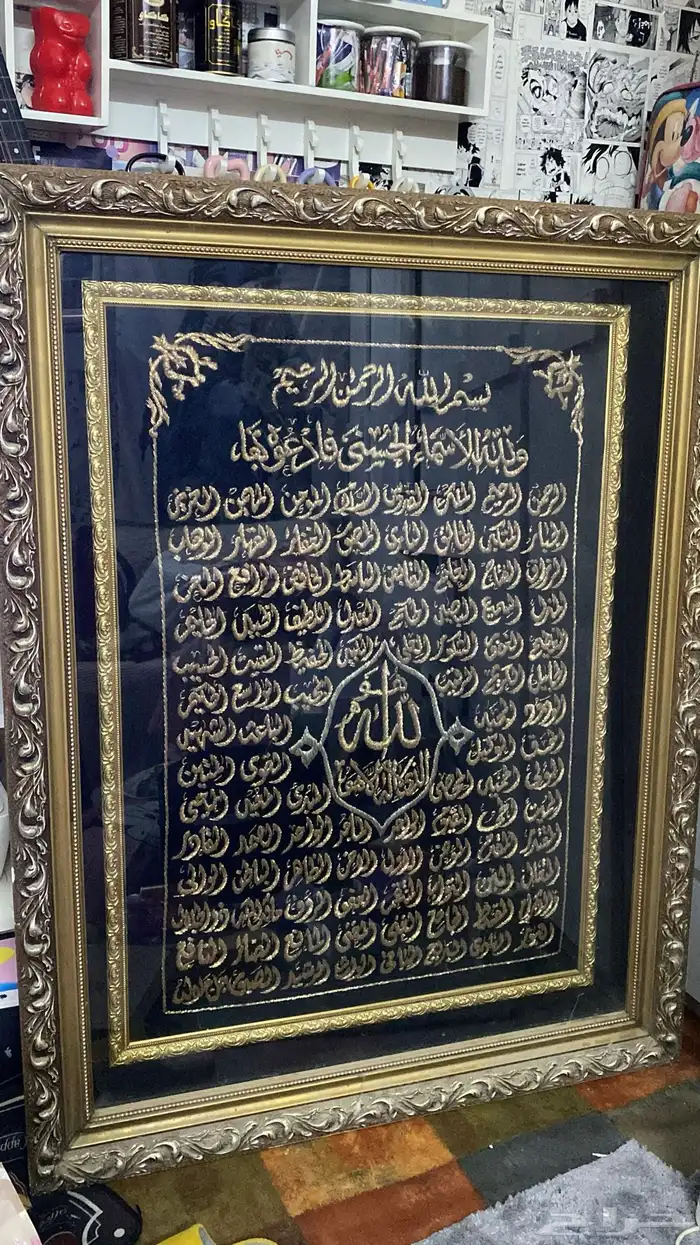 بسم الله الرحمن الرحيم
ولله الأسماء الحسنى فادعوه بها
الرحمن الرحيم الملك القدوس السلام المؤمن المهيمن العزيز
الجبار المتكبر الخالق البارئ المصور الغفار القهار الوهاب
الرزاق الفتاح العليم القابض الباسط الخافض الرافع المعز
المذل السميع البصير الحكم العدل اللطيف الخبير الحليم
العظيم الغفور الشكور العلي الكبير الحفيظ المقيت الحسيب
الجليل الكريم الرقيب المجيب الواسع الحكيم
الودود المجيد الباعث الشهيد
الحق الوكيل القوى المتين
الولي الحميد المحصى المبدئ المعيد المحيي
المميت الحي القيوم الواجد الماجد الواحد الصمد القادر
المقتدر المقدم المؤخر الأول الآخر الظاهر الباطن الوالي
المتعال البر التواب المنتقم العفو الرؤوف مالك الملك ذو الجلال
والإكرام المقسط الجامع الغني المغني المانع الضار النافع
النور الهادي البديع الباقي الوارث الرشيد الصبور
الله